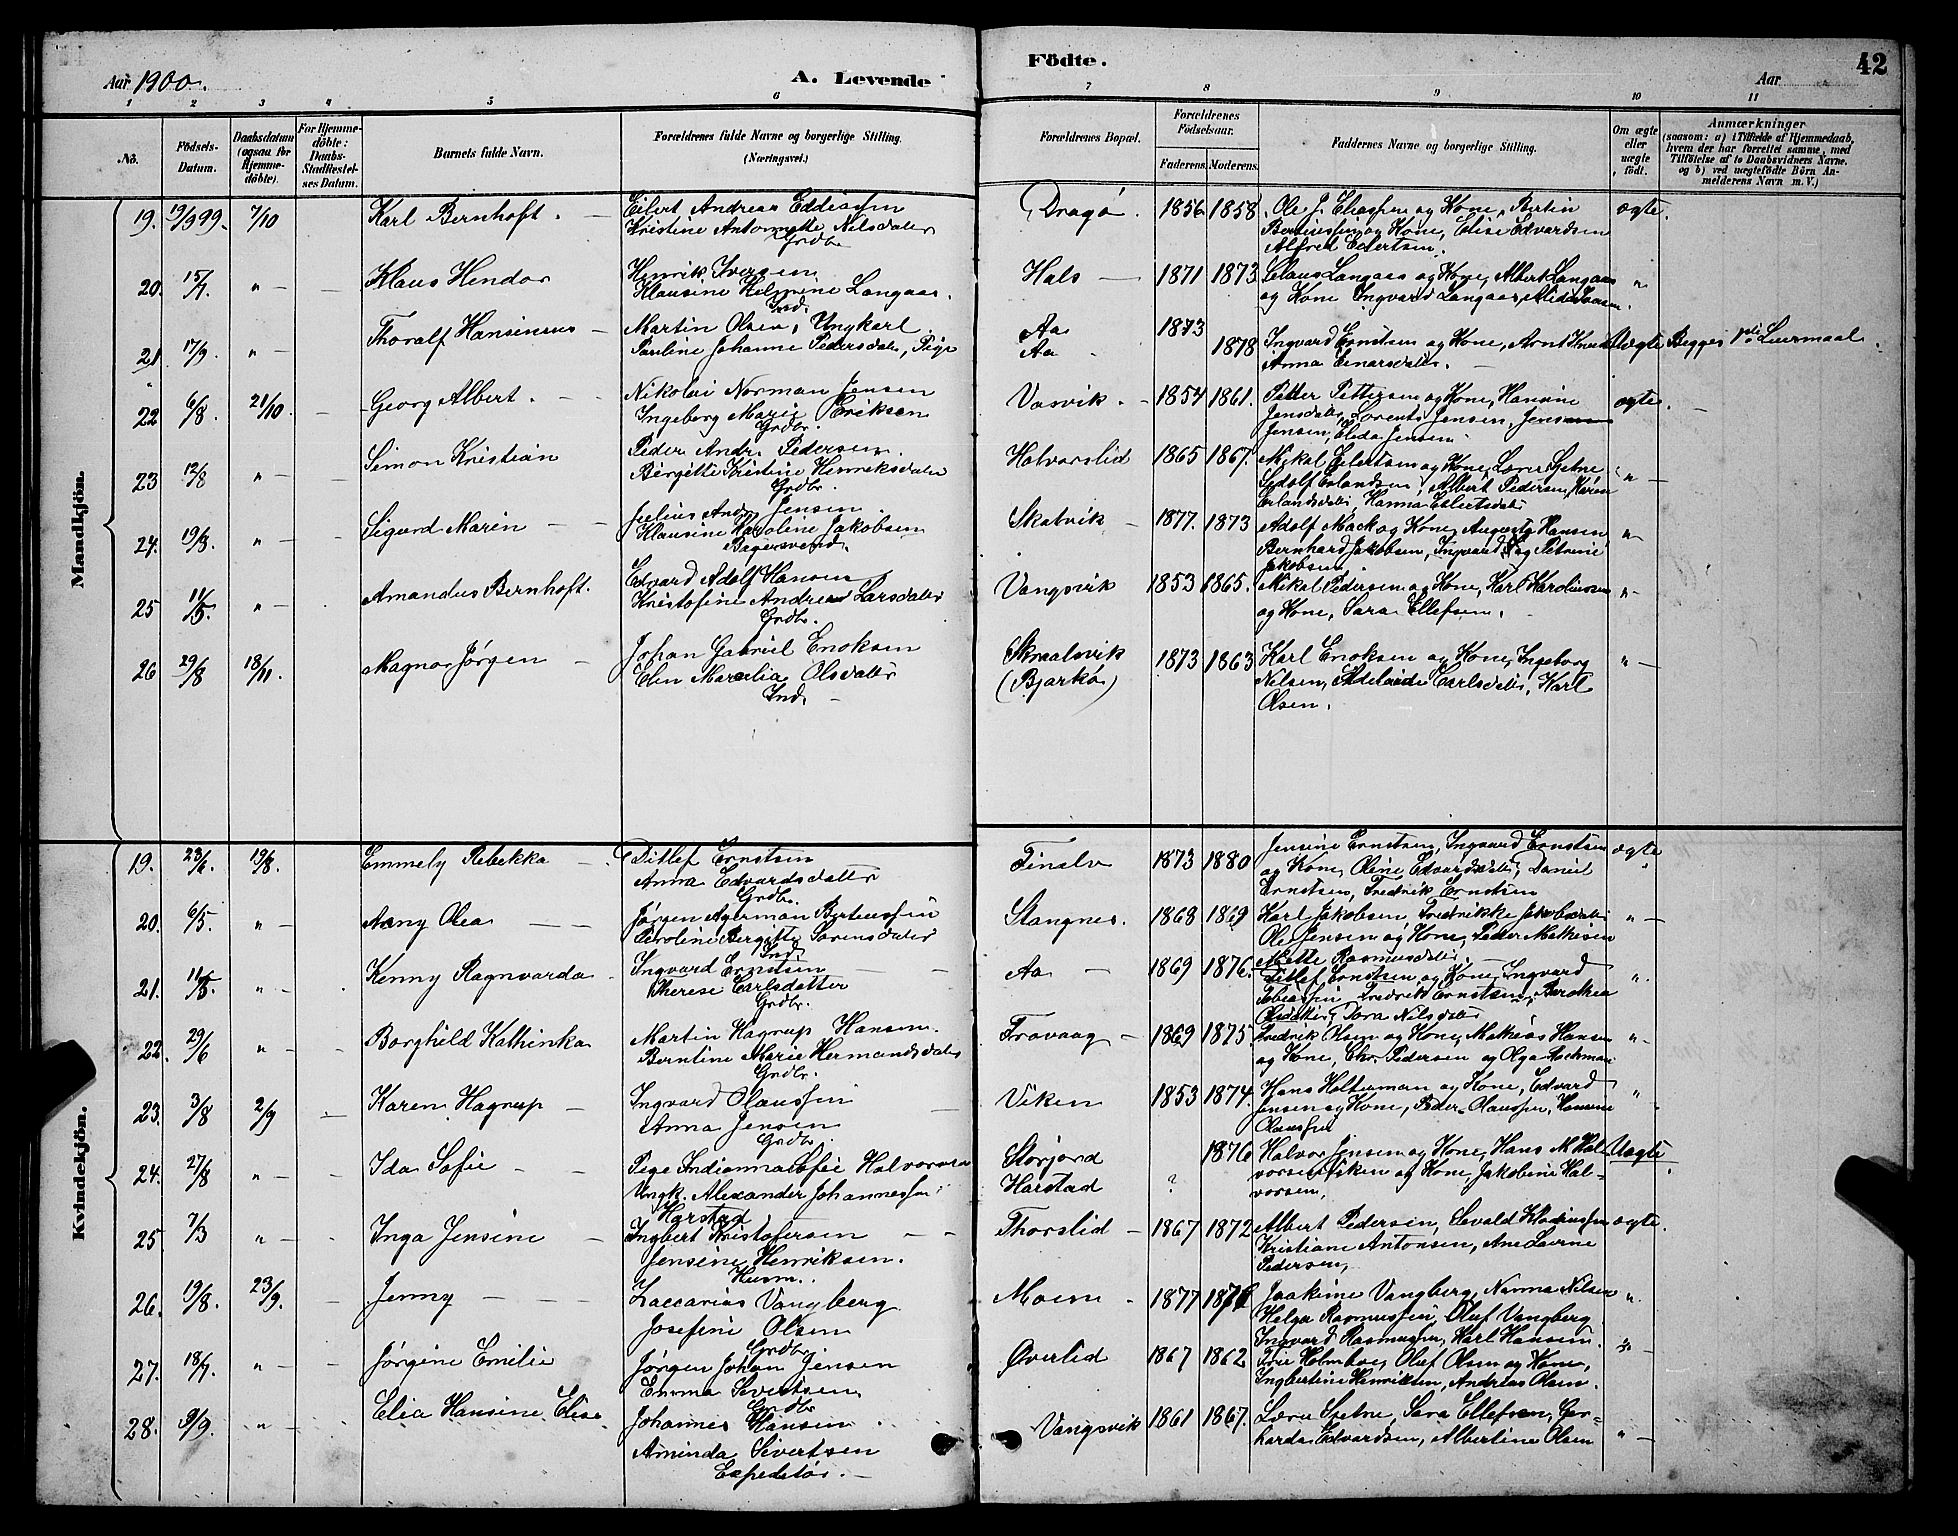 Aar 1900.
A. Levende
Födte.
Aar
42
1 2 3 4 5 6 7 8 9 10 11
No.
Födsels-
Datum.
Daabsdatum
(ogsaa for
Hjemme-
döbte).
For Hjemme-
döbte:
Daabs-
Stadfæstel-
ses Datum.
Barnets fulde Navn.
Forældrenes fulde Navne og borgerlige Stilling.
(Næringsvei.)
Forældrenes Bopæl.
Forældrenes
Födselsaar.
Faderens.
Moderens.
Faddernes Navne og borgerlige Stilling.
Om ægte
eller
uægte
født.
Anmærkninger
(saasom: a) i Tilfælde af Hjemmedaab,
hvem der har forrettet samme, med
Tilföielse af to Daabsvidners Navne.
og b) ved uægtefödte Börn An-
melderens Navn m. V.)
Mandkjön.
19. 19/9 99. 7/10 Karl Bernhoft. Eilert Andreas Eddissen
Kristine Antonette Nilsdatter
Grdbr.
Dragö. 1856 1858 Ole J. Eliassen og Kone, Bertin
Bertinessen og Kone, Elise Edvardsen
Alfred Eilertsen.
ægte.
20. 15/7 " Klaus Hendor Henrik Iversen
Klausine Helmine Langaas.
Ind.
Hals 1871 1873 Claus Langaas og Kone, Albert Langaas
og Kone Ingvard Langaas,
"
21. 17/9 " Thoralf Hansinius Martin Olsen, Ungkarl
Pauline Johanne Pedersdatter, Pige
Aa
Aa
1873
1878 Ingvard Erntsen og Kone, Arnt
Anna Einarsdatter.
Uægte Begges 1ste Leiermaal.
22 6/8. 21/10. Georg Albert. Nikolai Norman Jensen
Ingeborg Marie Eriksen
Grdbr.
Vasvik. 1854 1861. Petter Pettersen og Kone, Hansine
Jensdatter, Lorents Jensen,
Jensen, Elida Jensen.
ægte.
23 12/8 " Simon Kristian Peder Andr. Pedersen.
Birgitte Kristine Henriksdatter
Grdbr.
Halvarslid 1865 1867. Mikal Eilertsen og Kone, Lærer Sjetne
Sedolf Erlandsen, Albert Pedersen, Karen
Erlandsdatter, Hanna Eilertsdatter
"
24. 19/8. " Sigurd Marin Julius Andr. Jensen.
Klausine Karoline Jakobsen
Bagersvend.
Skatvik 1877. 1873 Adolf Mack og Kone, August Hansen
Bernhard Jakobsen, Ingvard og Petrine
Jakobsen
"
25 11/5. " Amandus Bernhoft. Edvard Adolf Hansen
Kristofine Andrea Larsdatter
Grdbr.
Vangsvik 1853 1865. Mikal Pedersen og Kone, Karl Karoliussen
og Kone, Sara Ellefsen.
"
26 29/8 18/11. Magnor Jørgen Johan Gabriel Enoksen
Elen Marselia Olsdatter
Ind.
Skraalsvik
(Bjarkø)
1873 1863 Karl Enoksen og Kone, Ingeborg
Nilsen, Adelaide Carlsdatter, Karl
Olsen.
"
Kvindekjön.
19. 23/6 19/8. Emmely Rebekka Ditlef Ernstsen
Anna Edvardsdatter
Grdbr.
Finslv 1873 1880 Jensine Ernstsen, Ingvard Ernstsen
og Kone, Oline Edvardsdatter, Daniel
Ernstsen, Fredrik Ernstsen
ægte
20. 6/5. " Aagny Olea Jørgen Agerman Berteussen
Peroline Bergitte Sørensdatter
Ind.
Stangnes. 1868 1869 Karl Jakobsen, Fredrikke Jakobsdatter
Ole Jensen og Kone, Peder Mathisen
Mette Rasmusdatter.
"
21. 11/5. " Kenny Ragnvarda Ingvard Erntsen
Therese Carlsdatter
Grdbr.
Aa 1869 1876. Ditlef Ernstsen og Kone, Ingvard
Tobiassen, Fredrik Ernstsen, Berothea
Olsdatter, Tora Nilsdatter
"
22. 29/6 " Borghild Kathinka Martin Hagrup Hansen.
Berntine Marie Hermandsdatter
Grdbr.
Fravaag 1869 1875. Fredrik Olsen og Kone, Mathias Hansen
og Kone, Chr. Pedersen og Olga
"
23. 3/8 2/9 Karen Hagrup Ingvard Olaussen
Anna Jensen
Grdbr.
Viken 1853 1874. Hans Holterman og Kone, Edvard
Jensen og Kone, Peder Olaussen, Hansine
Olaussen
"
24. 27/8 " Ida Sofie Pige Indianna Sofie Halvorsen
Ungk. Alexander Johannessen
Harstad
Storjord
Harstad
?
1876 Halvor Jensen og Kone, Hans M. Hal-
vorsen Viken og Kone, Jakobine Hal-
vorsen,
Uægte
25. 7/3 " Inga Jensine Ingbert Kristofersen
Jensine Henriksen.
Husm.
Thorslid 1867 1872 Albert Pedersen, Sevald Klodiussen
Kristiane Antonsen, Ane Lovine
Pedersen,
ægte.
26. 19/8. 23/9. Jenny Zaccarias Vangberg
Josefine Olsen
Grdbr.
Moen 1877 1876 Joakime Vangberg, Norma Nilsen
Helga Rasmussen, Oluf Vangberg
Ingvard Rasmussen, Karl Hansen.
"
27. 18/7. " Jørgine Emilie Jørgen Johan Jensen
Emma Sivertsen
Grdbr
Øverlid 1867 1862 Holmboe, Oluf Olsen og Kone,
Ingbertine Henriksen, Andreas Olsen.
"
28. 9/9. " Elia Hansine Elise Johannes Hansen
Aminda Sivertsen
Expeditør.
Vangsvik 1861 1867. Lærer Sjetne, Sara Ellefsen, Ger-
harda Edvardsen, Albertine Olsen
"